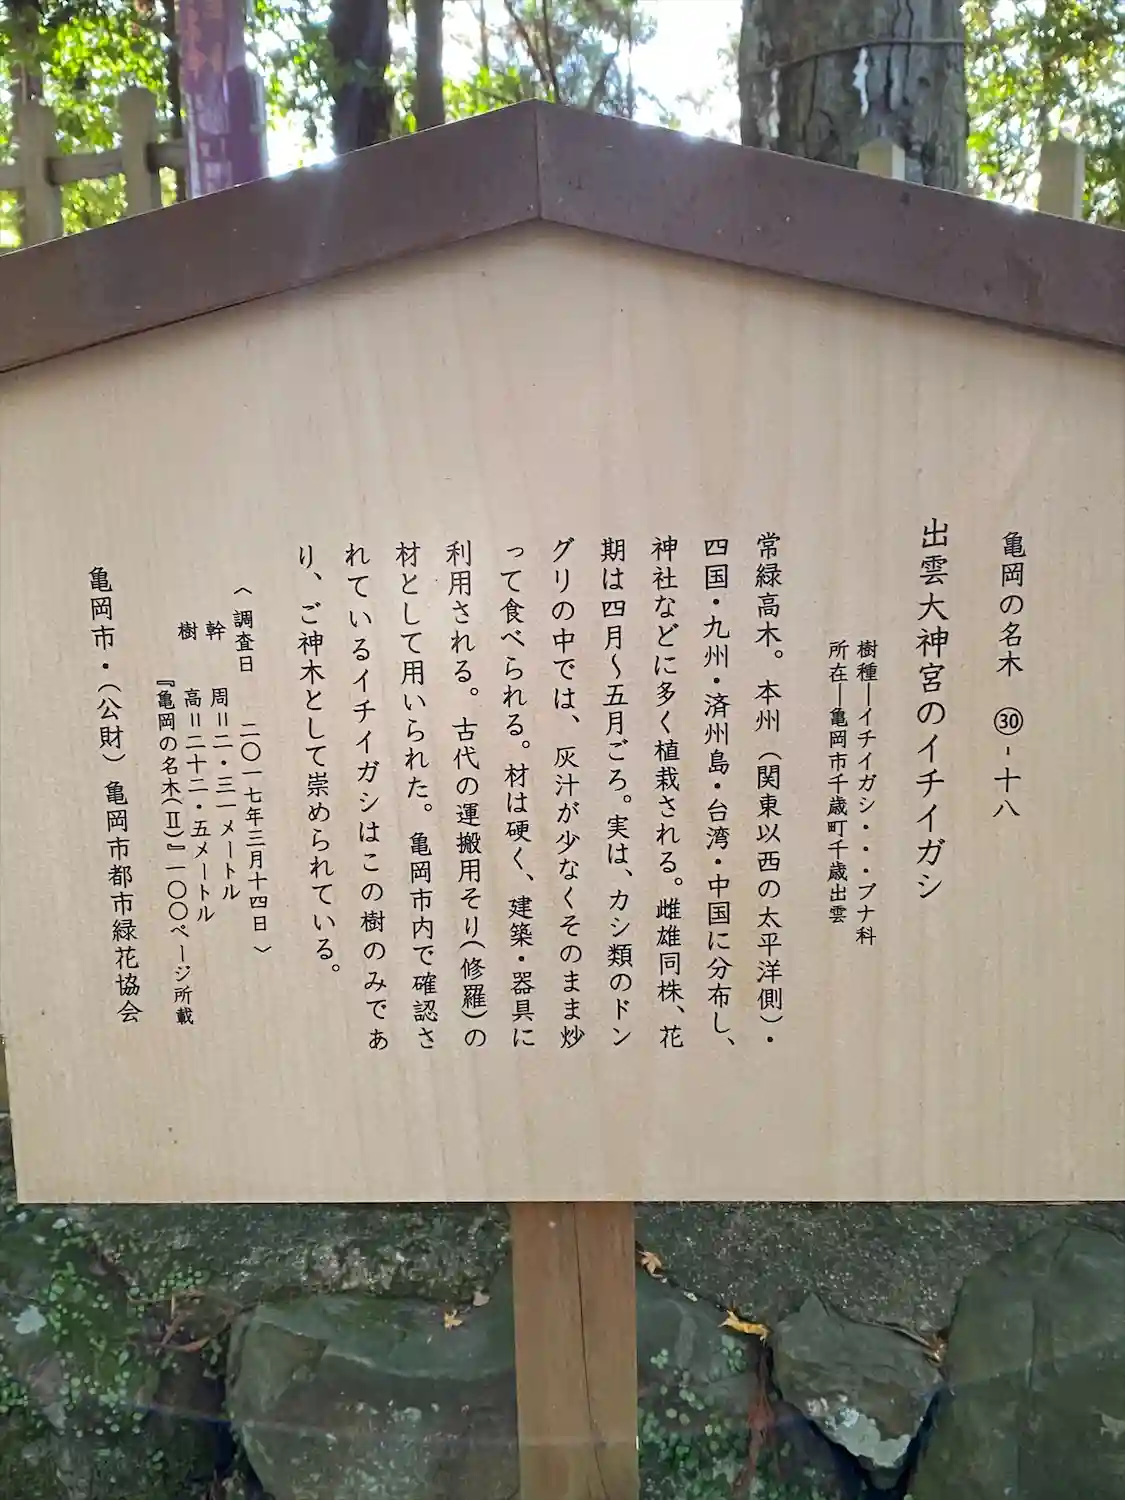 亀岡の名木　㉚-十八
出雲大神宮のイチイガシ
樹種―イチイガシ・・・ブナ科
所在―亀岡市千歳町千歳出雲
常緑高木。本州（関東以西の太平洋側）・
四国・九州・済州島・台湾・中国に分布し、
神社などに多く植栽される。雌雄同株、花
期は四月～五月ごろ。実は、カシ類のドン
グリの中では、灰汁が少なくそのまま炒
って食べられる。材は硬く、建築・器具に
利用される。古代の運搬用そり（修羅）の
材として用いられた。亀岡市内で確認さ
れているイチイガシはこの樹のみであ
り、ご神木として崇められている。
〈調査日　二〇一七年三月十四日〉
幹　周＝二・三一メートル
樹　高＝二十二・五メートル
『亀岡の名木（Ⅱ）』一〇〇ページ所載
亀岡市・（公財）亀岡市都市緑花協会